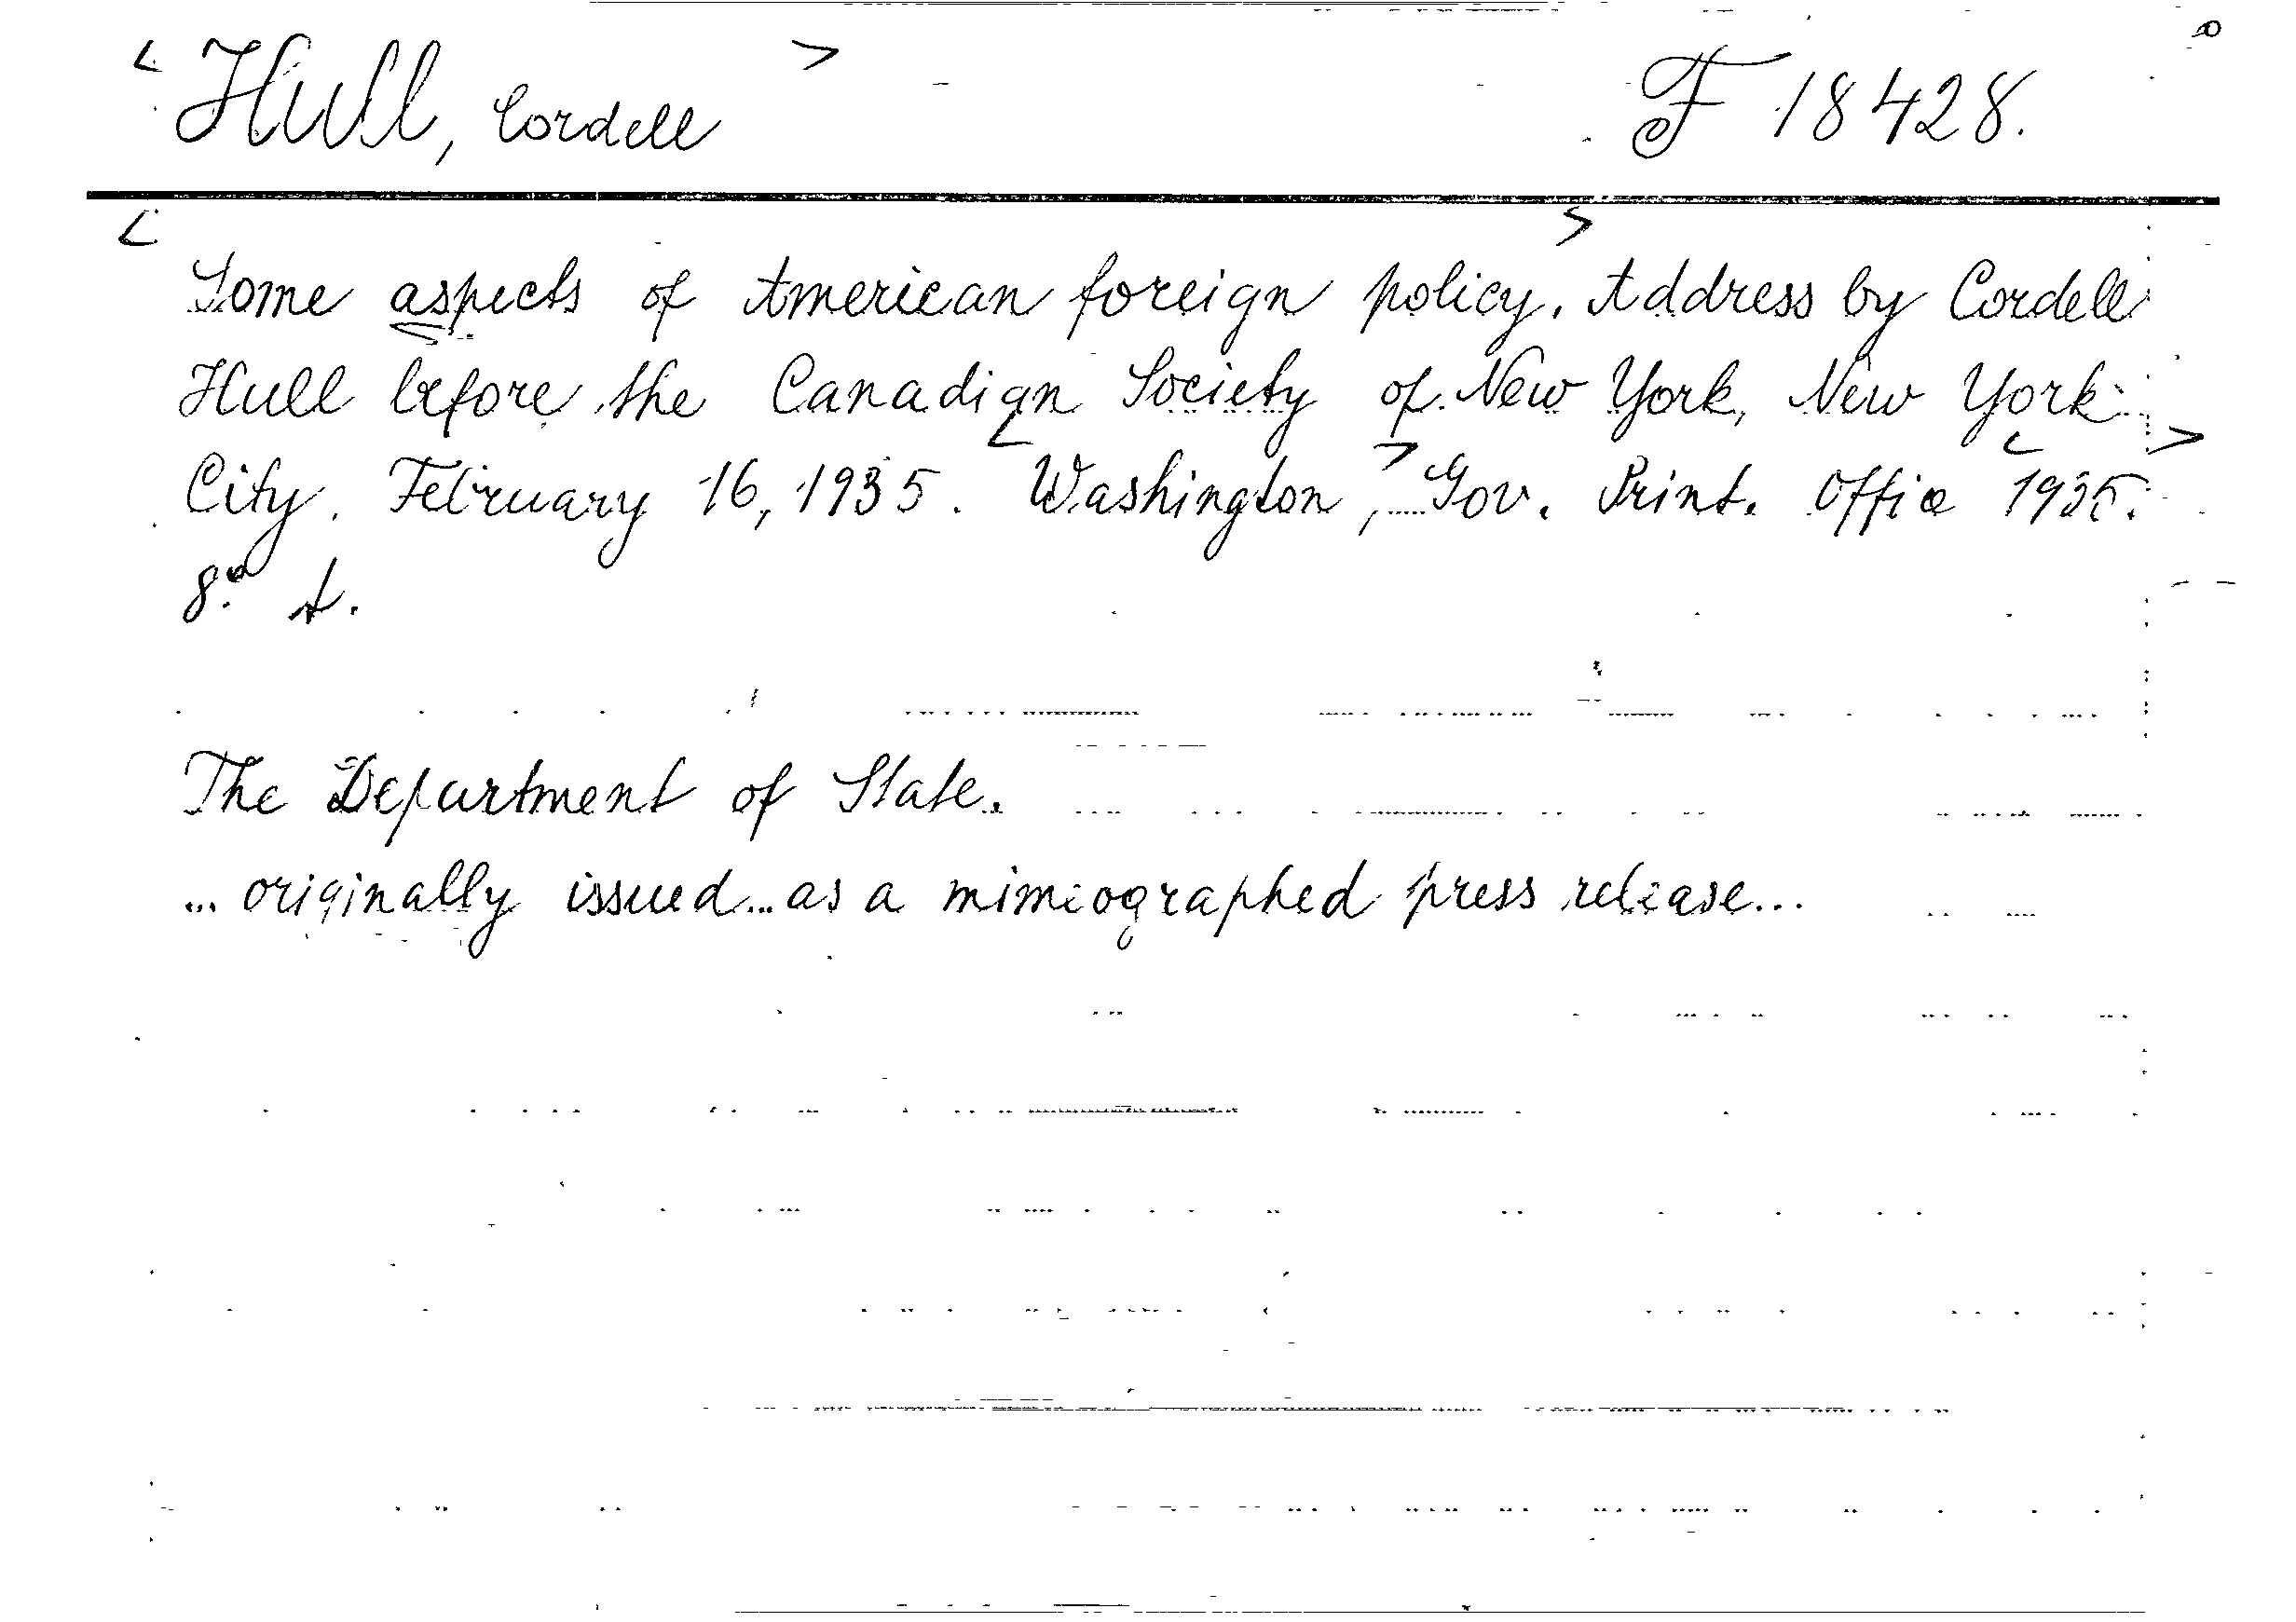 < Hull, Cordell > F 18428.
< Some aspects of American foreign policy. > Address by Cordell
Hull before the Canadian Society of New York, New York
City. February 16, 1935. < Washington, > Gov. Print. Office < 1935. >
8° A.
The Department of State.
... originally issued ... as a mimeographed press release...